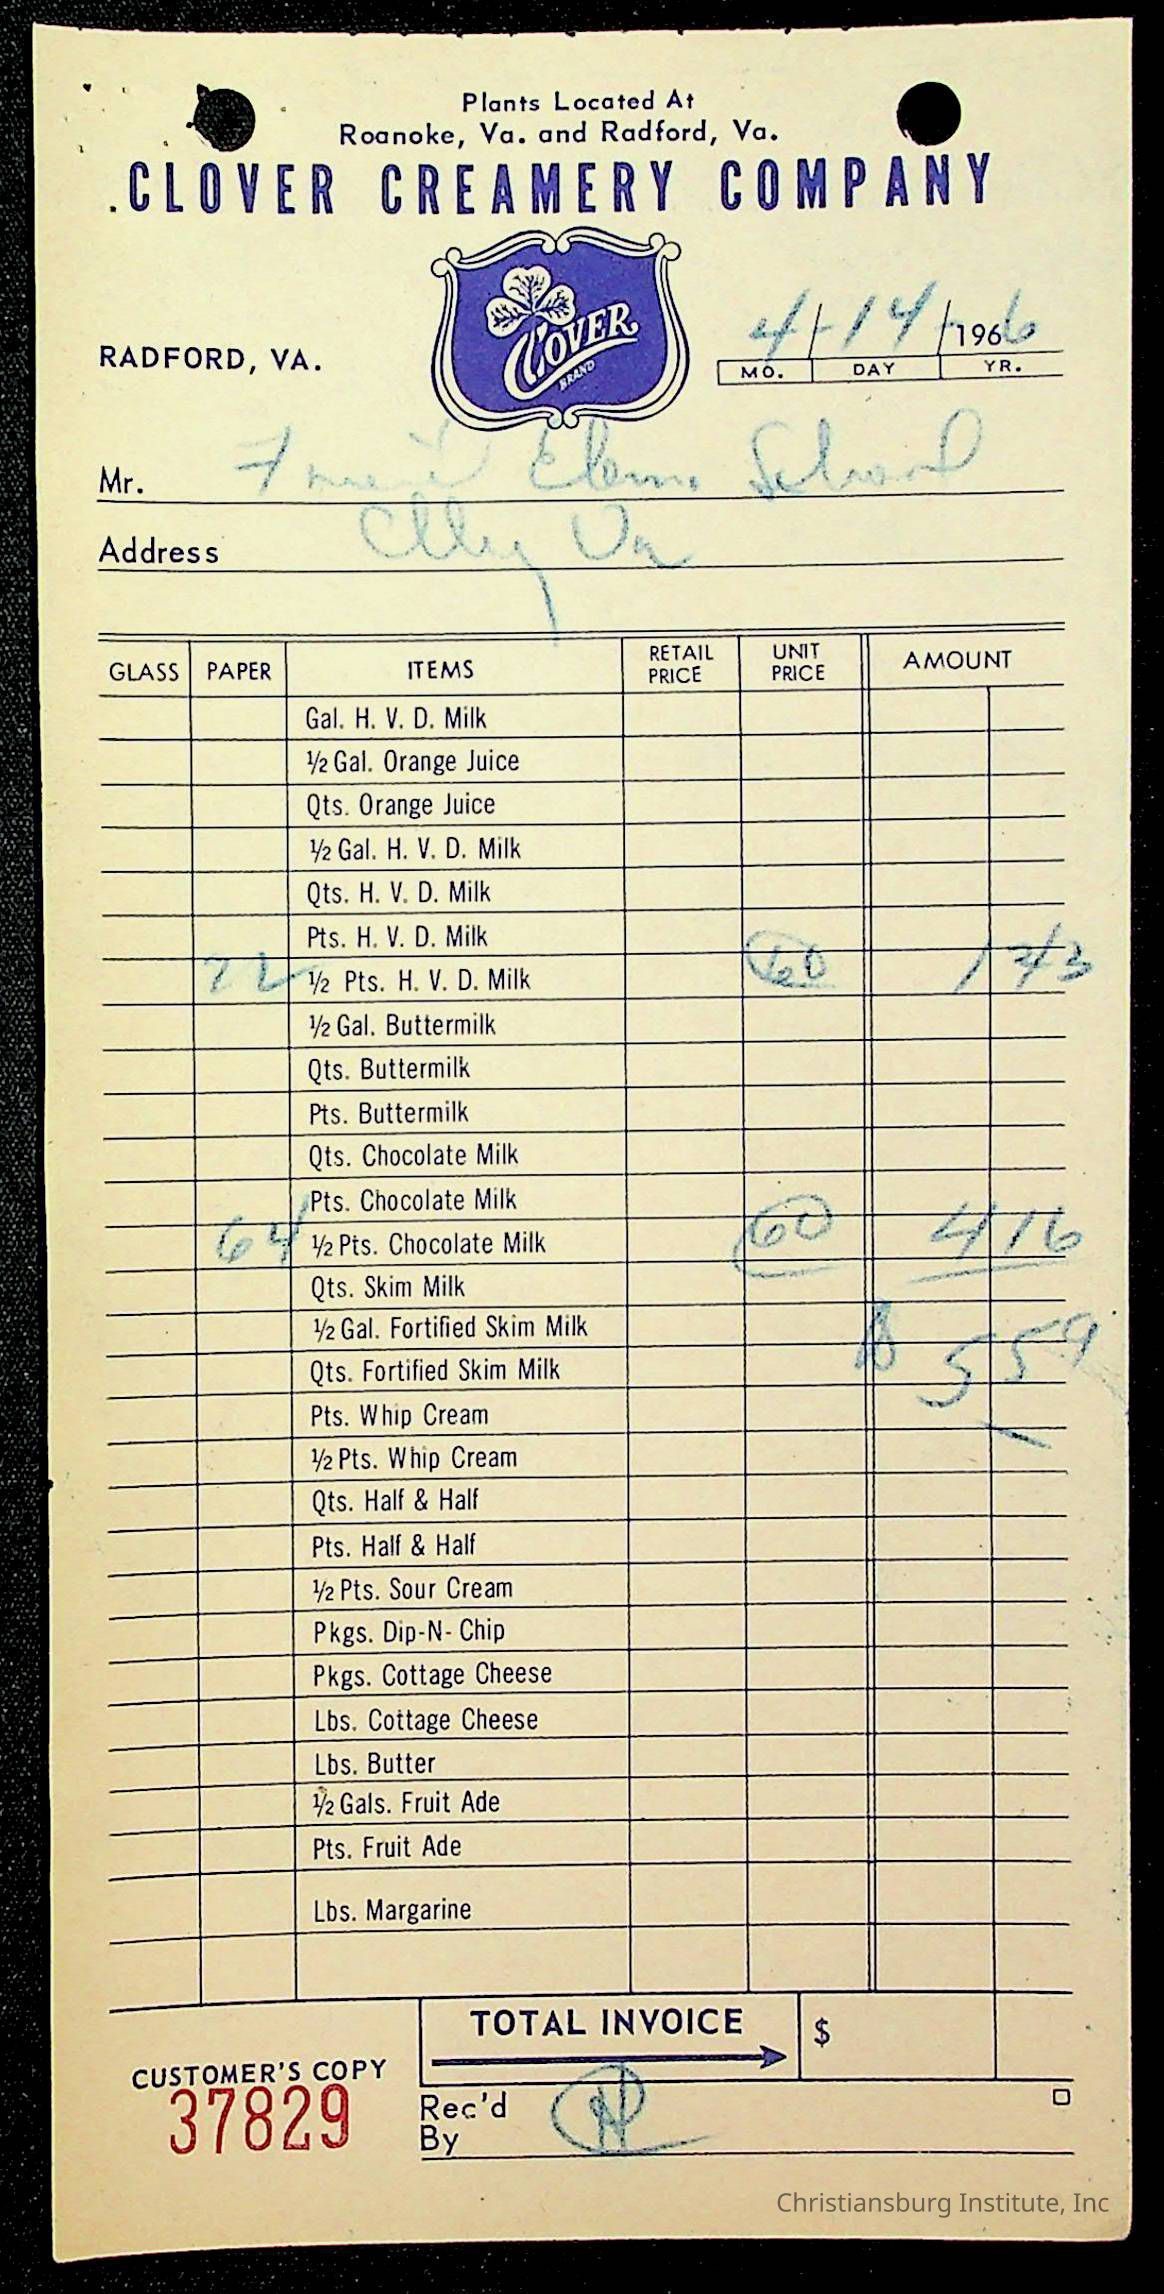 Plants Located At
Roanoke, Va. and Radford, Va.
CLOVER CREAMERY COMPANY
CLOVER
BRAND
RADFORD, VA.
4-14-1966
MO. DAY YR.
Mr. Elem. School
Address Va
GLASS PAPER ITEMS RETAIL PRICE UNIT PRICE AMOUNT
Gal. H. V. D. Milk
½ Gal. Orange Juice
Qts. Orange Juice
½ Gal. H. V. D. Milk
Qts. H. V. D. Milk
Pts. H. V. D. Milk
22 ½ Pts. H. V. D. Milk 60 1 43
½ Gal. Buttermilk
Qts. Buttermilk
Pts. Buttermilk
Qts. Chocolate Milk
Pts. Chocolate Milk
64 ½ Pts. Chocolate Milk 60 4 16
Qts. Skim Milk
½ Gal. Fortified Skim Milk
Qts. Fortified Skim Milk 5 59
Pts. Whip Cream
½ Pts. Whip Cream
Qts. Half & Half
Pts. Half & Half
½ Pts. Sour Cream
Pkgs. Dip-N-Chip
Pkgs. Cottage Cheese
Lbs. Cottage Cheese
Lbs. Butter
½ Gals. Fruit Ade
Pts. Fruit Ade
Lbs. Margarine
TOTAL INVOICE $
CUSTOMER'S COPY
37829
Rec'd
By
Christiansburg Institute, Inc